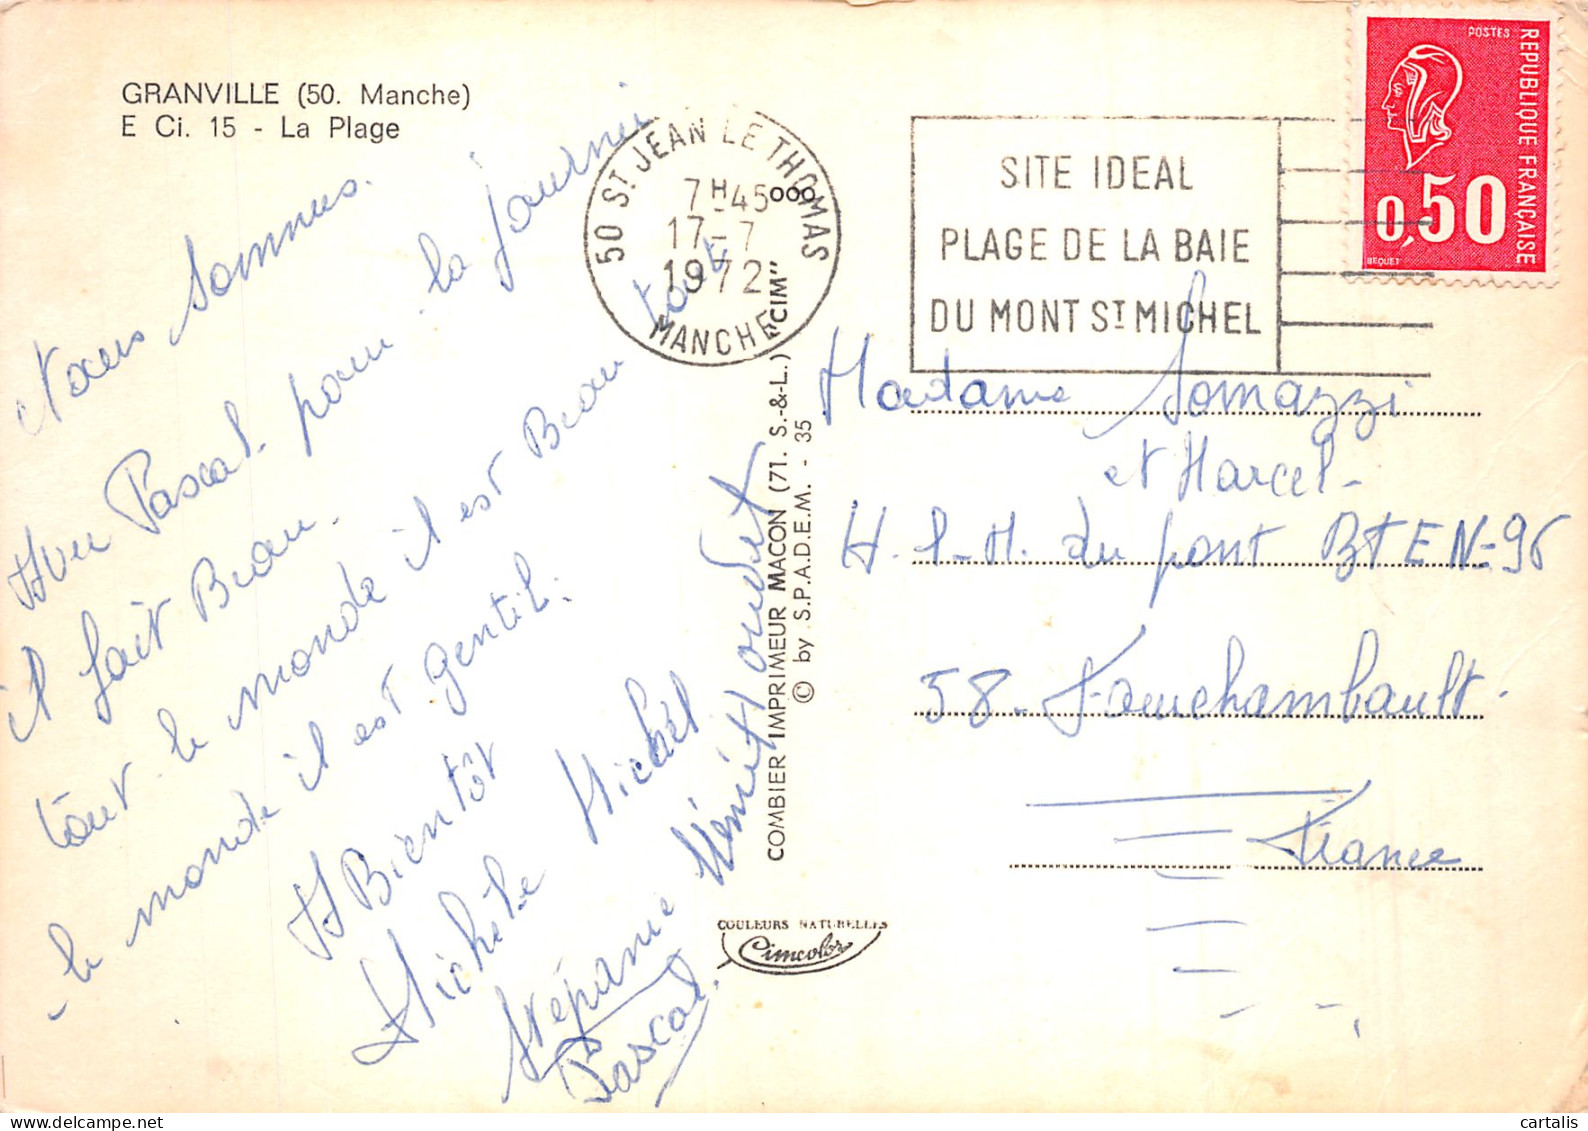 GRANVILLE (50. Manche)
E Ci. 15 - La Plage
Nous sommes
Avec Pascal pour la journée
il fait Beau.
tout le monde il est Beau tout
le monde il est gentil.
A Bientôt
Michèle Michaël
Stéphanie
Pascal.
50 ST JEAN LE THOMAS
7H45
17-7
1972
MANCHE
ooo
SITE IDEAL
PLAGE DE LA BAIE
DU MONT ST MICHEL
POSTES
REPUBLIQUE FRANÇAISE
0,50
BEQUET
COMBIER IMPRIMEUR MACON (71. S.-&-L.) "CIM"
© by S.P.A.D.E.M. - 35
COULEURS NATURELLES
Cimcolor
Madame Somazzi
et Marcel-
H.L-M. du pont BTEN=96
58-Fourchambault.
France
cartalis